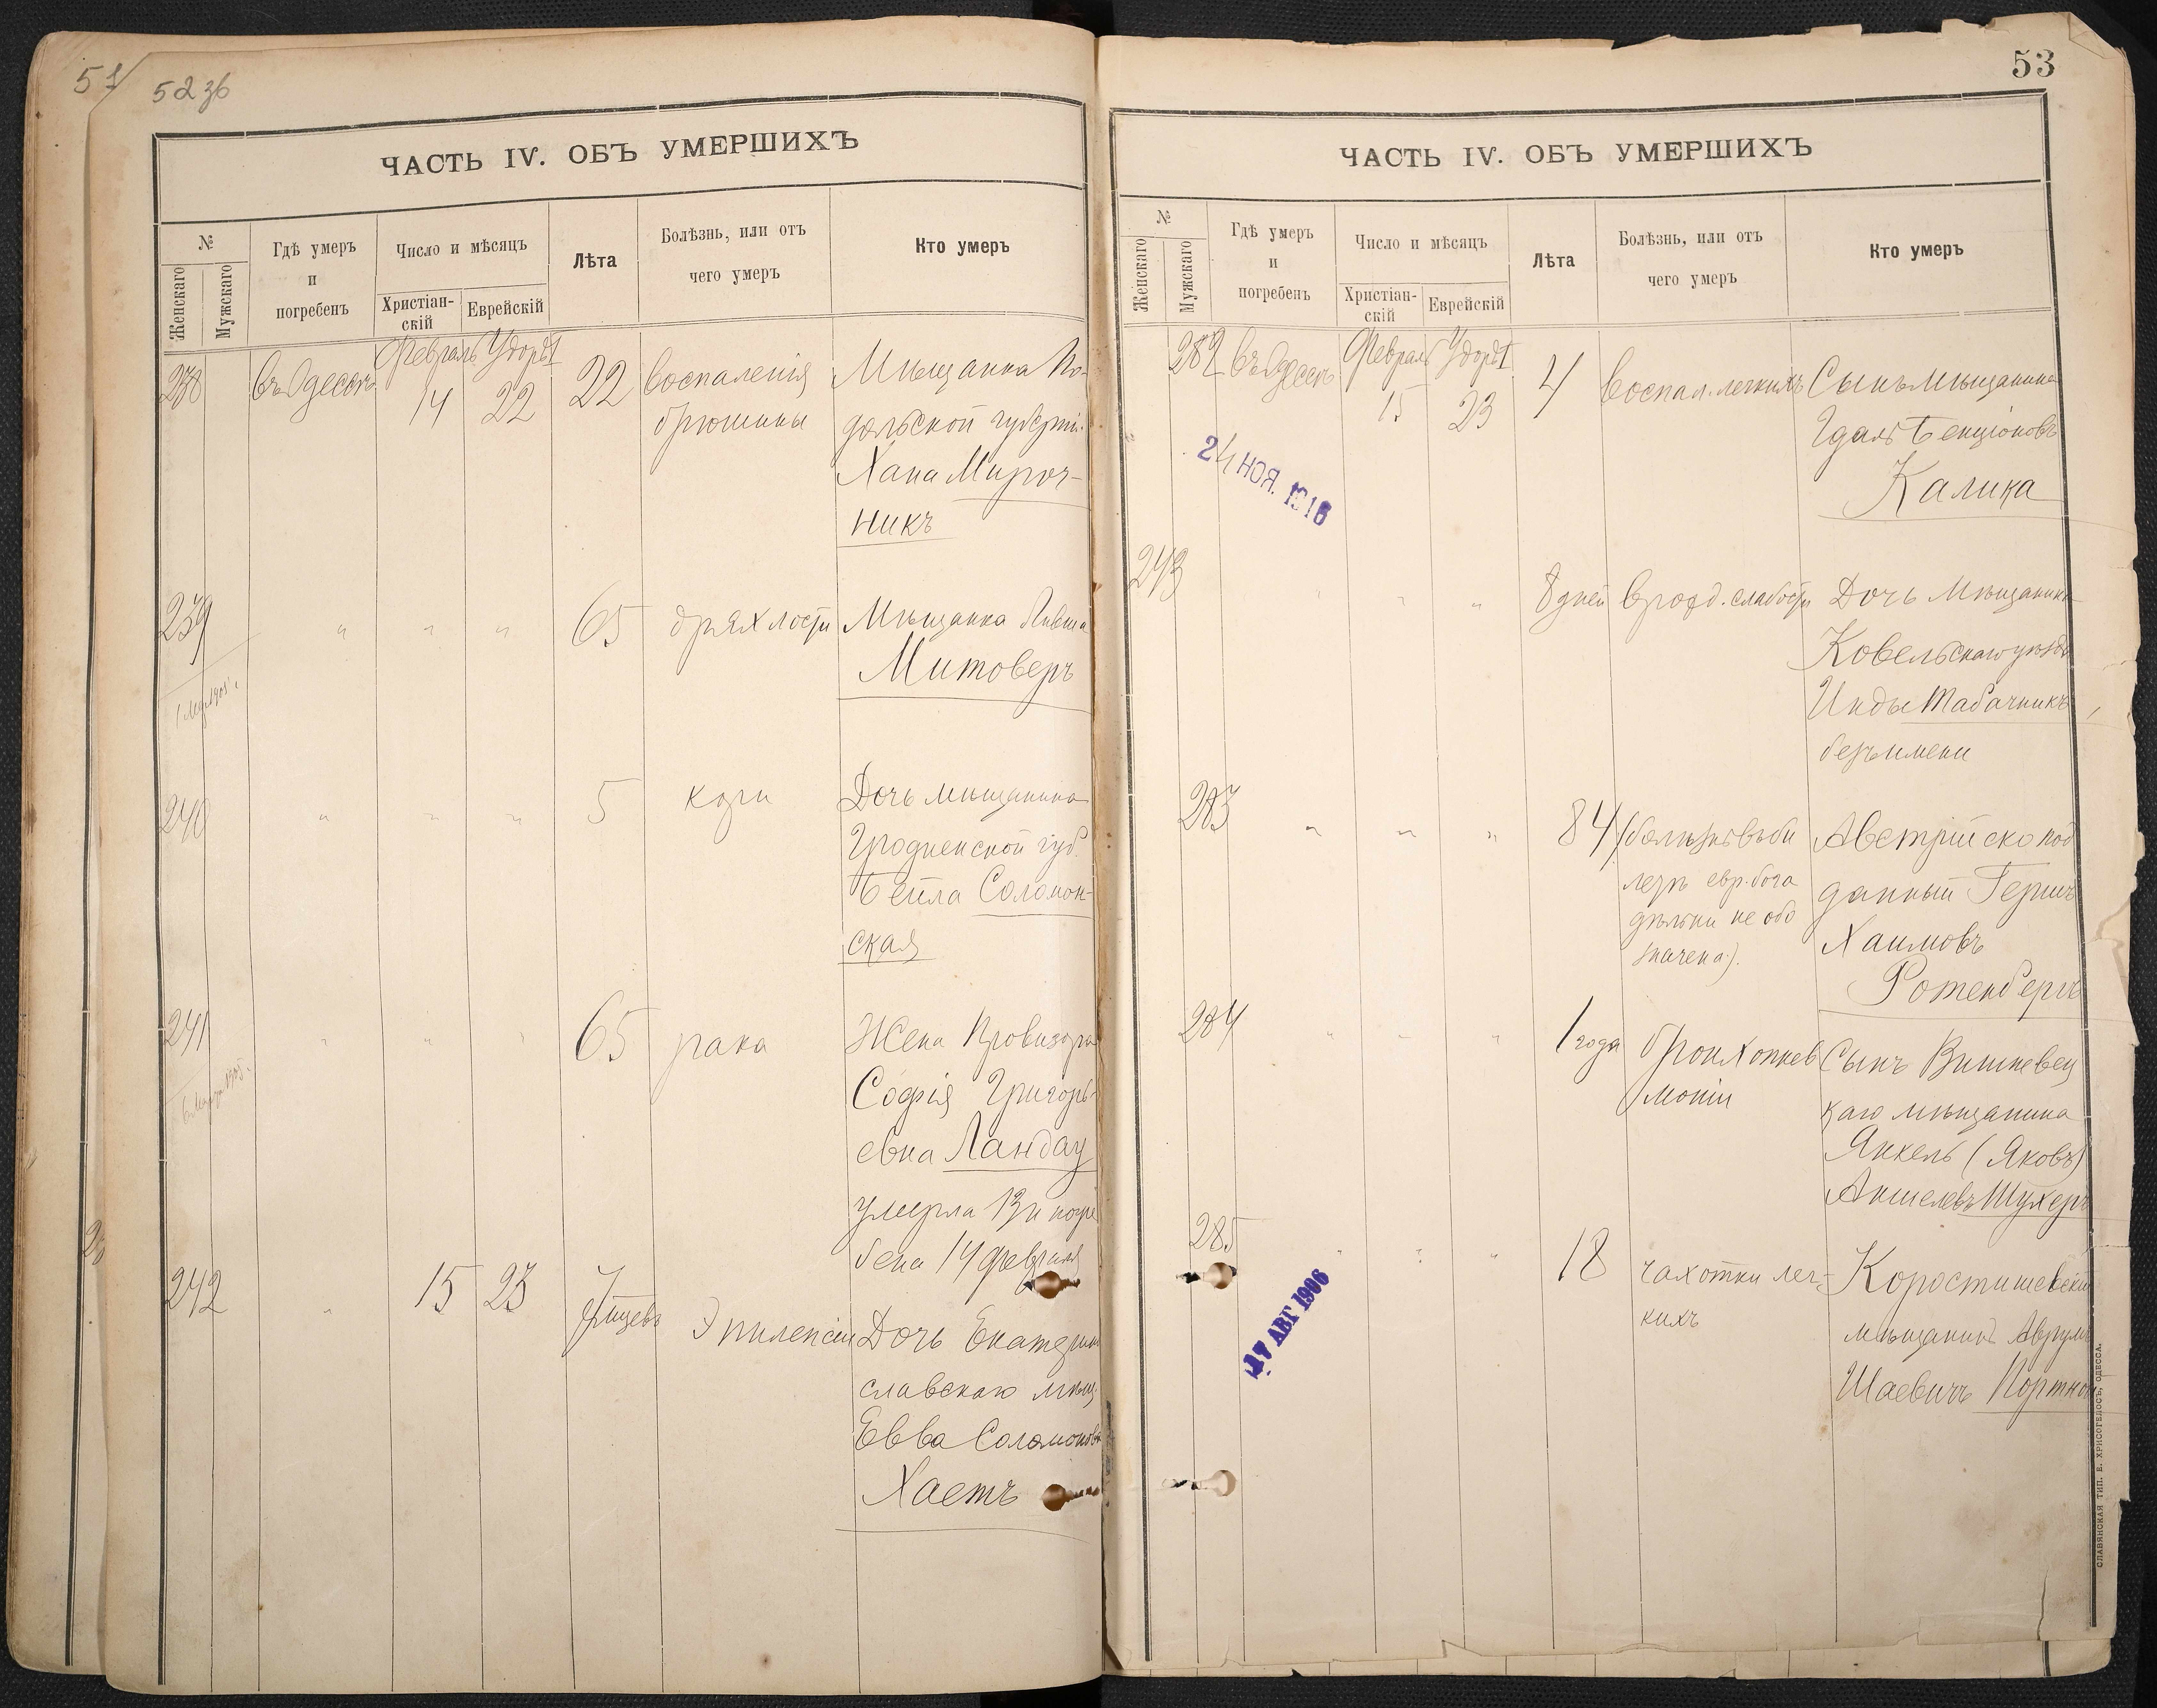 51
52 зв
ЧАСТЬ IV. ОБЪ УМЕРШИХЪ
№
Женскаго
Мужскаго
Гдѣ умеръ
и
погребенъ
Число и мѣсяцъ
Христіан-
скій
Еврейскій
Лѣта
Болѣзнь, или отъ
чего умеръ
Кто умеръ
238
въ Одессѣ
Февраль
14
22
22
воспаленія
брюшины
Мѣщанка По-
дольской губерніи
Хана Мироч-
никъ
239
" " "
65
дряхлости
Мѣщанка
Митоверъ
240
" " "
5
кори
Дочь мѣщанина
Гродненской губ.
Бейла Соломон-
ская
241
" " "
65
рака
Жена Провизора
Софія Григорь-
евна Ландау
умерла 13 и погре
бена 14 февраля
242
"
15
23
7
мѣсяцевъ
Эпилепсіи
Дочь Екатерино
славскаго мѣщ.
Евва Соломонова
Хаетъ
53
ЧАСТЬ IV. ОБЪ УМЕРШИХЪ
№
Женскаго
Мужскаго
Гдѣ умеръ
и
погребенъ
Число и мѣсяцъ
Христіан-
скій
Еврейскій
Лѣта
Болѣзнь, или отъ
чего умеръ
Кто умеръ
282
въ Одессѣ
Февраль
15
23
4
воспал. легкихъ
Сынъ мѣщанина
Бенціоновъ
Калика
24 НОЯ. 1916
243
" " "
8 дней
врожд. слабости
Дочь Мѣщанина
Ковельскаго уѣзда
Табачникъ
безъ имени
283
" " "
84
(болѣзнь въ би
летѣ евр. бога
дѣльни не обо
значена).
Австрійско под
данный Гершъ
Хаимовъ
Ротенбергъ
284
" " "
1 года
бронхопнев
моніи
Сынъ Вишневец
каго мѣщанина
Янкель (Яковъ)
Аншелевъ Шухеръ
285
" " "
18
чахотки лег-
кихъ
Коростишевскій
мѣщанинъ Аврумъ
Шаевичъ Портной
17 АВГ 1906
СЛАВЯНСКАЯ ТИП. Е. ХРИСОГЕЛОСЪ, ОДЕССА.